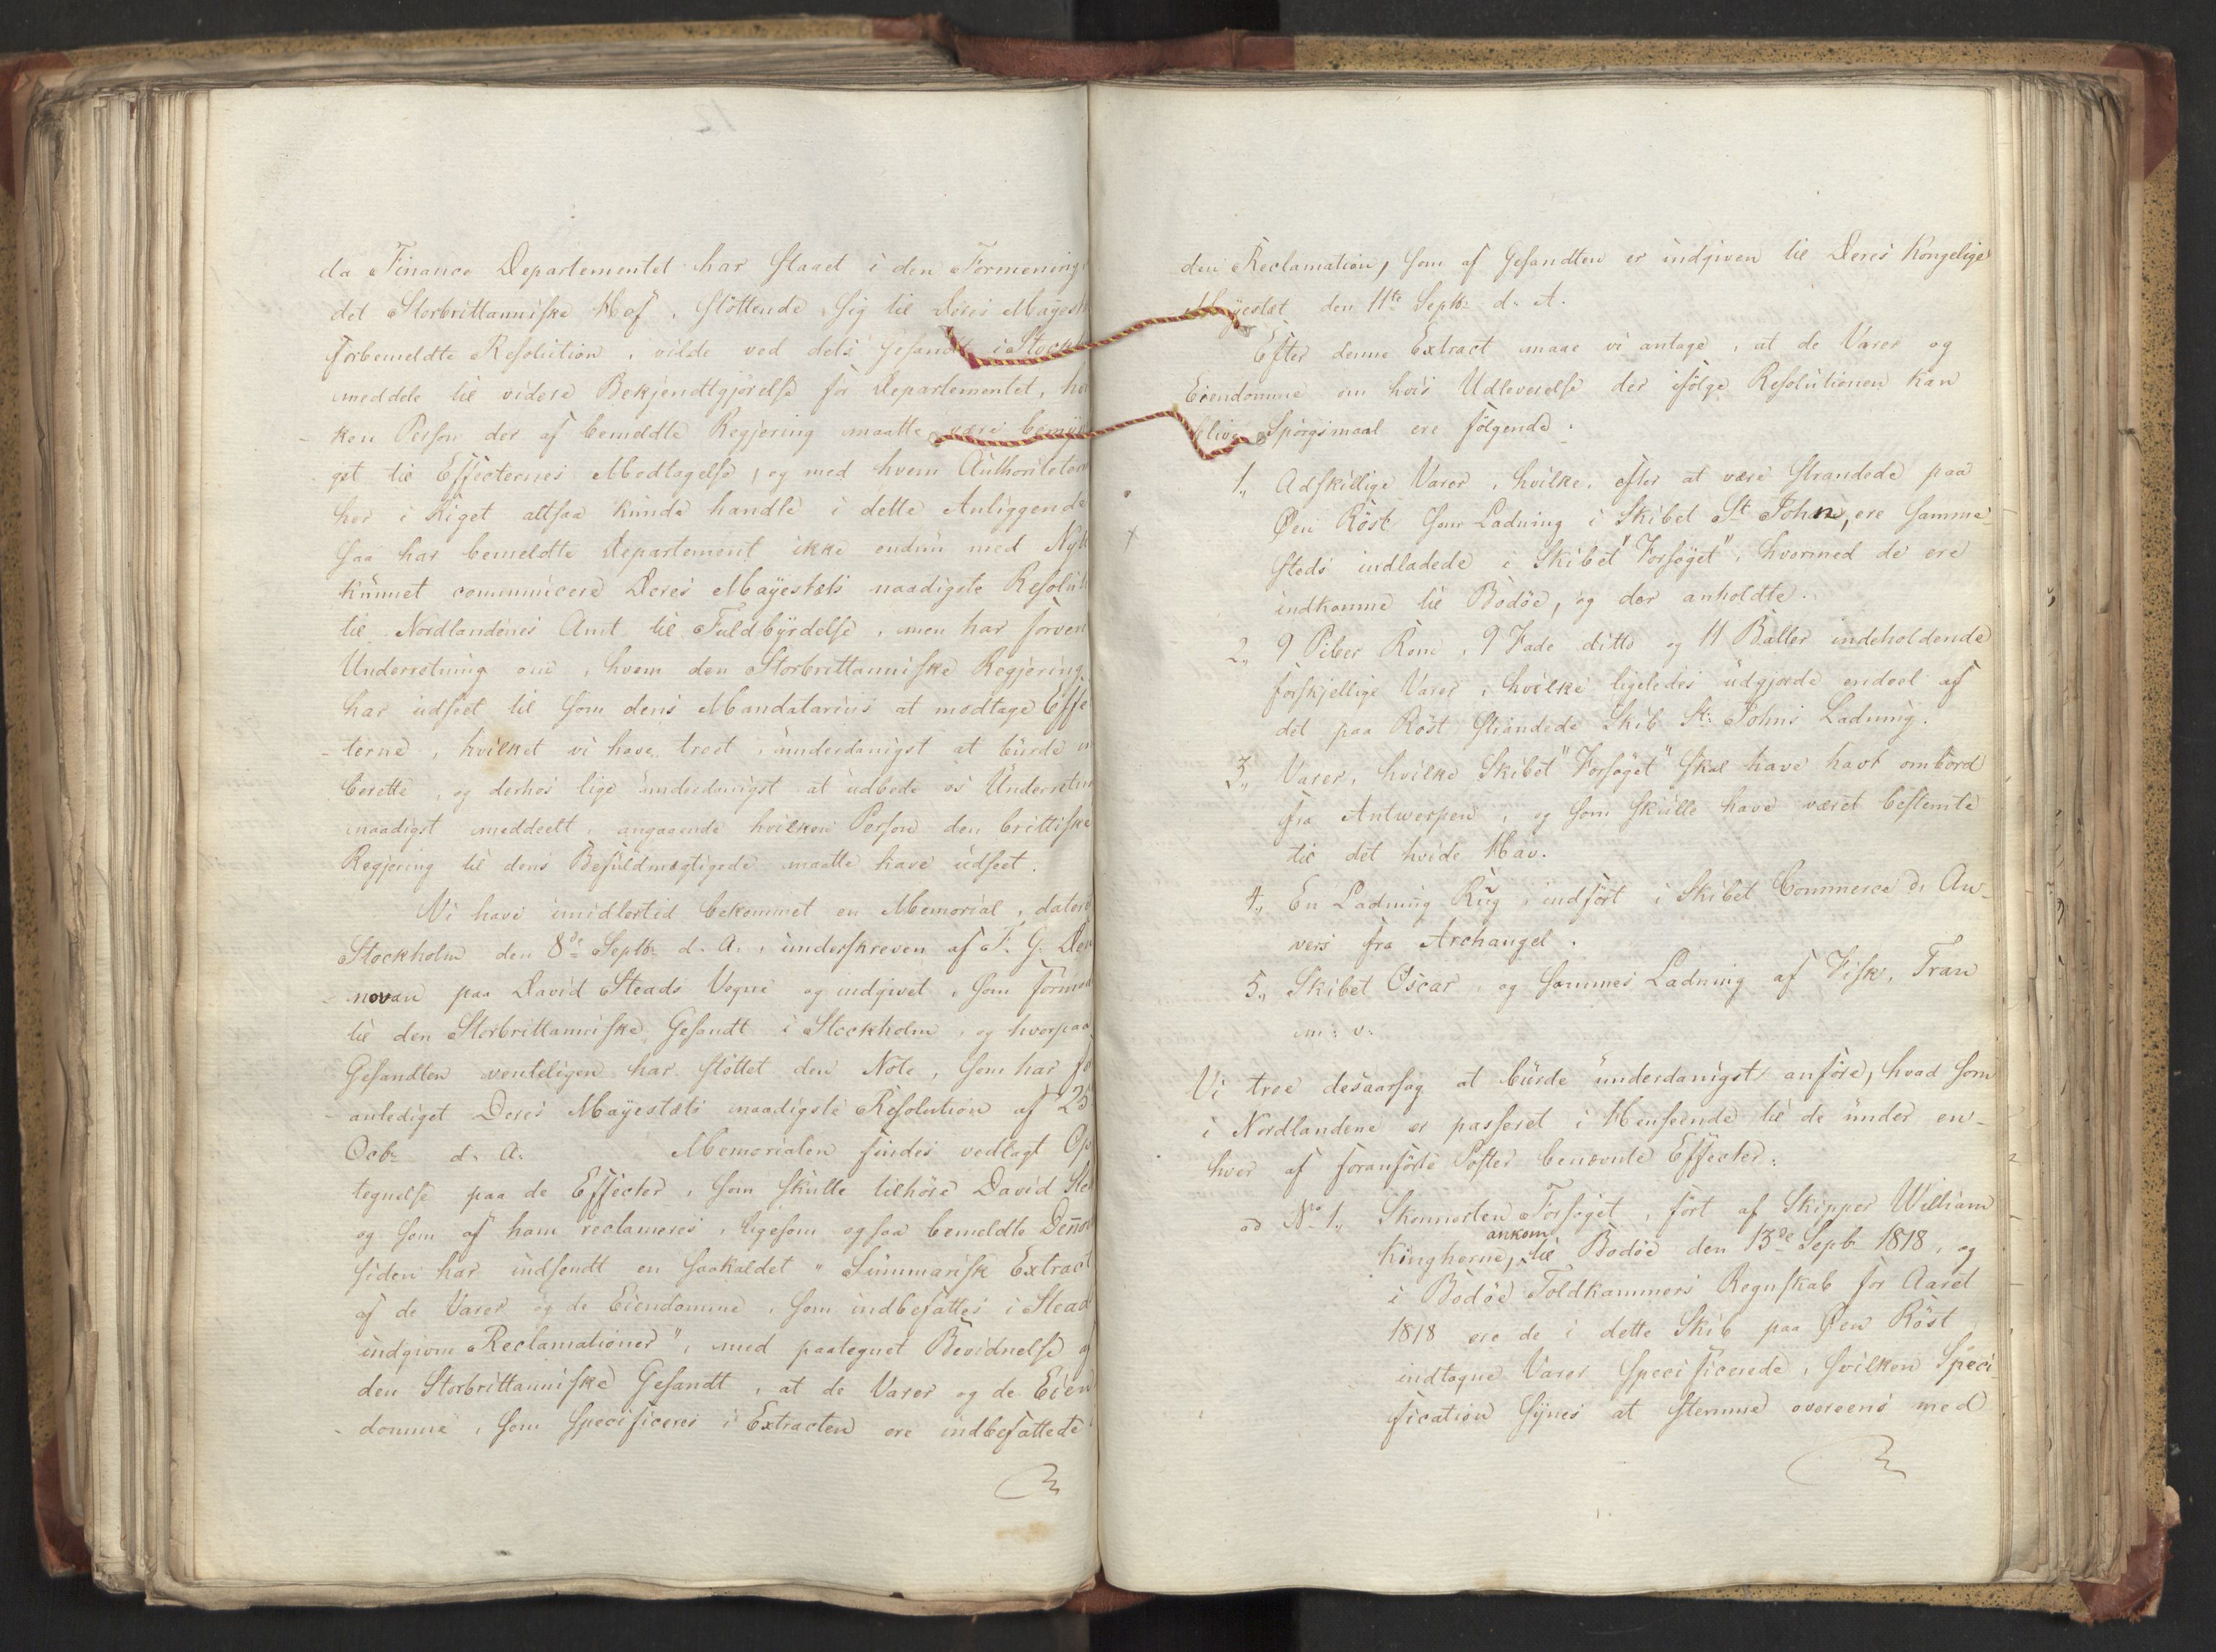 da Finance Departementet har staaet i den Formening
det Storbrittanniske Hof, støttende sig til Deres Mayest
forbemeldte Resolution, vilde ved dets Gesandt i Stockh
meddele til videre Bekjendtgjørelse for Departementet, hvi
ken Person der af bemeldte Regjering maatte være bemyn
get til Effecternes Modtagelse, og med hvem Authoriteterne
her i Riget altsaa kunde handle i dette Anliggende
saa har bemeldte Departement ikke endnu med Nytte
kunnet communicere Deres Mayestæts naadigste Resolut
til Nordlandenes Amt til Fuldbyrdelse, men har forven
Underretning om, hvem den Storbrittanniske Regjering
har udseet til som dens Mandatarius at modtage Effe
terne, hvilket vi have troet underdanigst at burde
berette, og derhos lige underdanigst at udbede os Underretn
naadigst meddeelt, angaaende hvilken Person den brittiske
Regjering til dens Befuldmægtigede maatte have udseet.
Vi have imidlertid bekommet en Memorial, dateret
Stockholm den 8de Septbr d. A., underskreven af F. G. Den
novan paa David Steads Vegne og indgivet, som formod
til den Storbrittanniske Gesandt i Stockholm, og hvorpaa
Gesandten venteligen har støttet den Note, som har for
anlediget Deres Mayestæts naadigste Resolution af 23
Octb. d. A. Memorialen findes vedlagt Op
tegnelse paa de Effecter, som skulle tilhøre David Stead
og som af ham reclameres, ligesom ogsaa bemeldte Denno
siden har indsendt en saakaldet "Summarisk Extract
af de Varer og de Eiendomme, som indbefattes i Stead
indgivne Reclamationer", med paategnet Bevidnelse af
den Storbrittanniske Gesandt, at de Varer og de Eien
domme, som specificeres i Extracten ere indbefattede i
den Reclamation, som af Gesandten er indgiven til Deres Kongelige
Mayestæt den 11te Septbr d. A.
Efter denne Extract maae vi antage, at de Varer og
Eiendomme om hvis Udleverelse der ifølge Resolutionen kan
blive Spørgsmaal ere følgende:
1., Adskillige Varer, hvilke, efter at være strandede paa
Øen Röst som Ladning i Skibet St Johns, ere samme
steds indladede i Skibet "Forsøget", hvormed de ere
indkomne til Bodöe, og der anholdte.
2., 9 Piber Rom, 9 Fade ditto og 11 Baller indeholdende
forskjellige Varer, hvilke ligeledes udgjorde endeel af
det paa Röst strandede Skib St: Johns Ladning.
3., Varer, hvilke Skibet "Forsøget" skal have havt ombord
fra Antwerpen, og som skulle have været bestemte
til det hvide Hav.
4., En Ladning Rug, indført i Skibet Commerce d'An-
vers fra Archangel.
5., Skibet Oscar, og sammes Ladning af Fisk, Tran
m: v:
Vi troe desaarsag at burde underdanigst anføre, hvad som
i Nordlandene er passeret i Henseende til de under en-
hver af foranførte Poster benævnte Effecter:
ad No 1., Skonnerten Forsøget, ført af Skipper William
Kinghorne, ankom til Bodöe den 13de Septb 1818, og
i Bodöe Toldkammers Regnskab for Aaret
1818 ere de i dette Skib paa Øen Röst
indtagne Varer specificerede, hvilken Speci-
fication synes at stemme overeens med